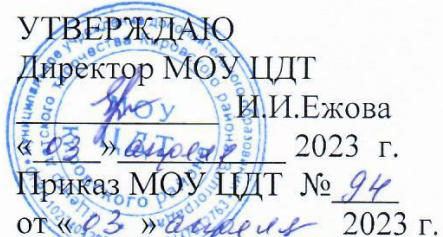 УТВЕРЖДАЮ
Директор МОУ ЦДТ
И.И.Ежова
«03» апреля 2023 г.
Приказ МОУ ЦДТ № 94
от «03» апреля 2023 г.